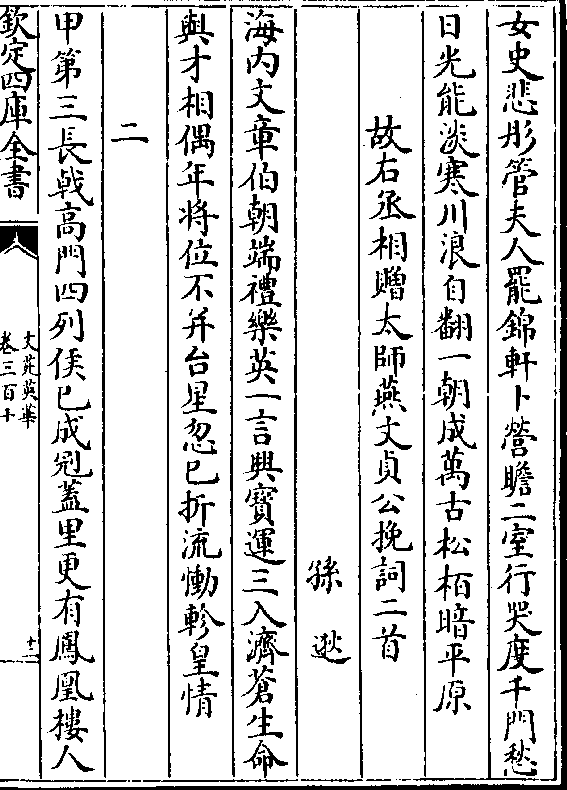 女史悲彤管夫人罷錦軒卜營瞻二室行哭度千門愁
日光能淡寒川浪自翻一朝成萬古松栢暗平原
故右丞相贈太師燕文貞公挽詞二首
孫逖
海内文章伯朝端禮樂英一言興寳運三入濟蒼生命
與才相偶年將位不并台星忽已折流慟軫皇情
二
甲第三長戟高門四列侯已成冠蓋里更有鳳凰樓人
欽定四庫全書
文苑英華
卷三百十
十一